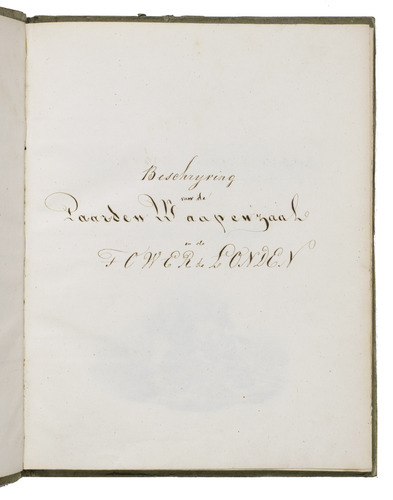 Beschryving
van de
Paarden Waapenzaal
in de
TOWER te LONDEN